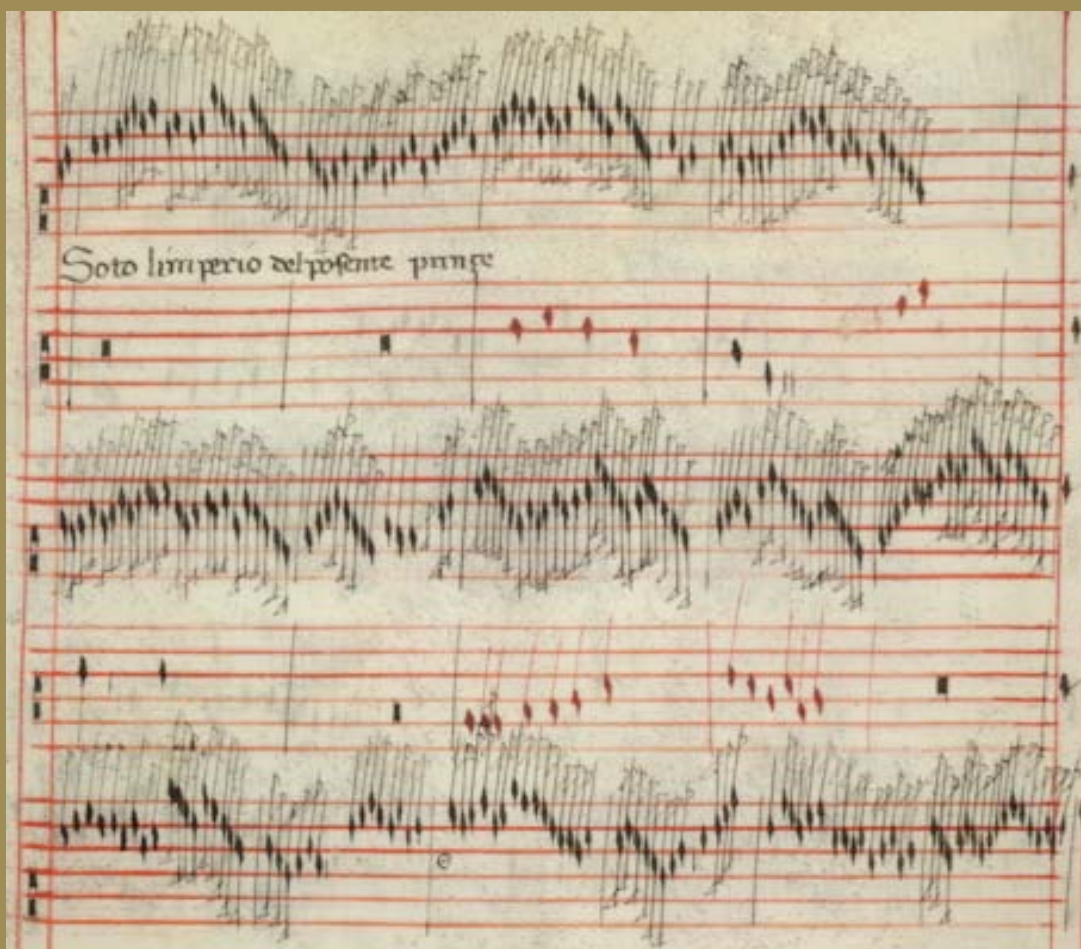 Soto limperio del posente prinçe